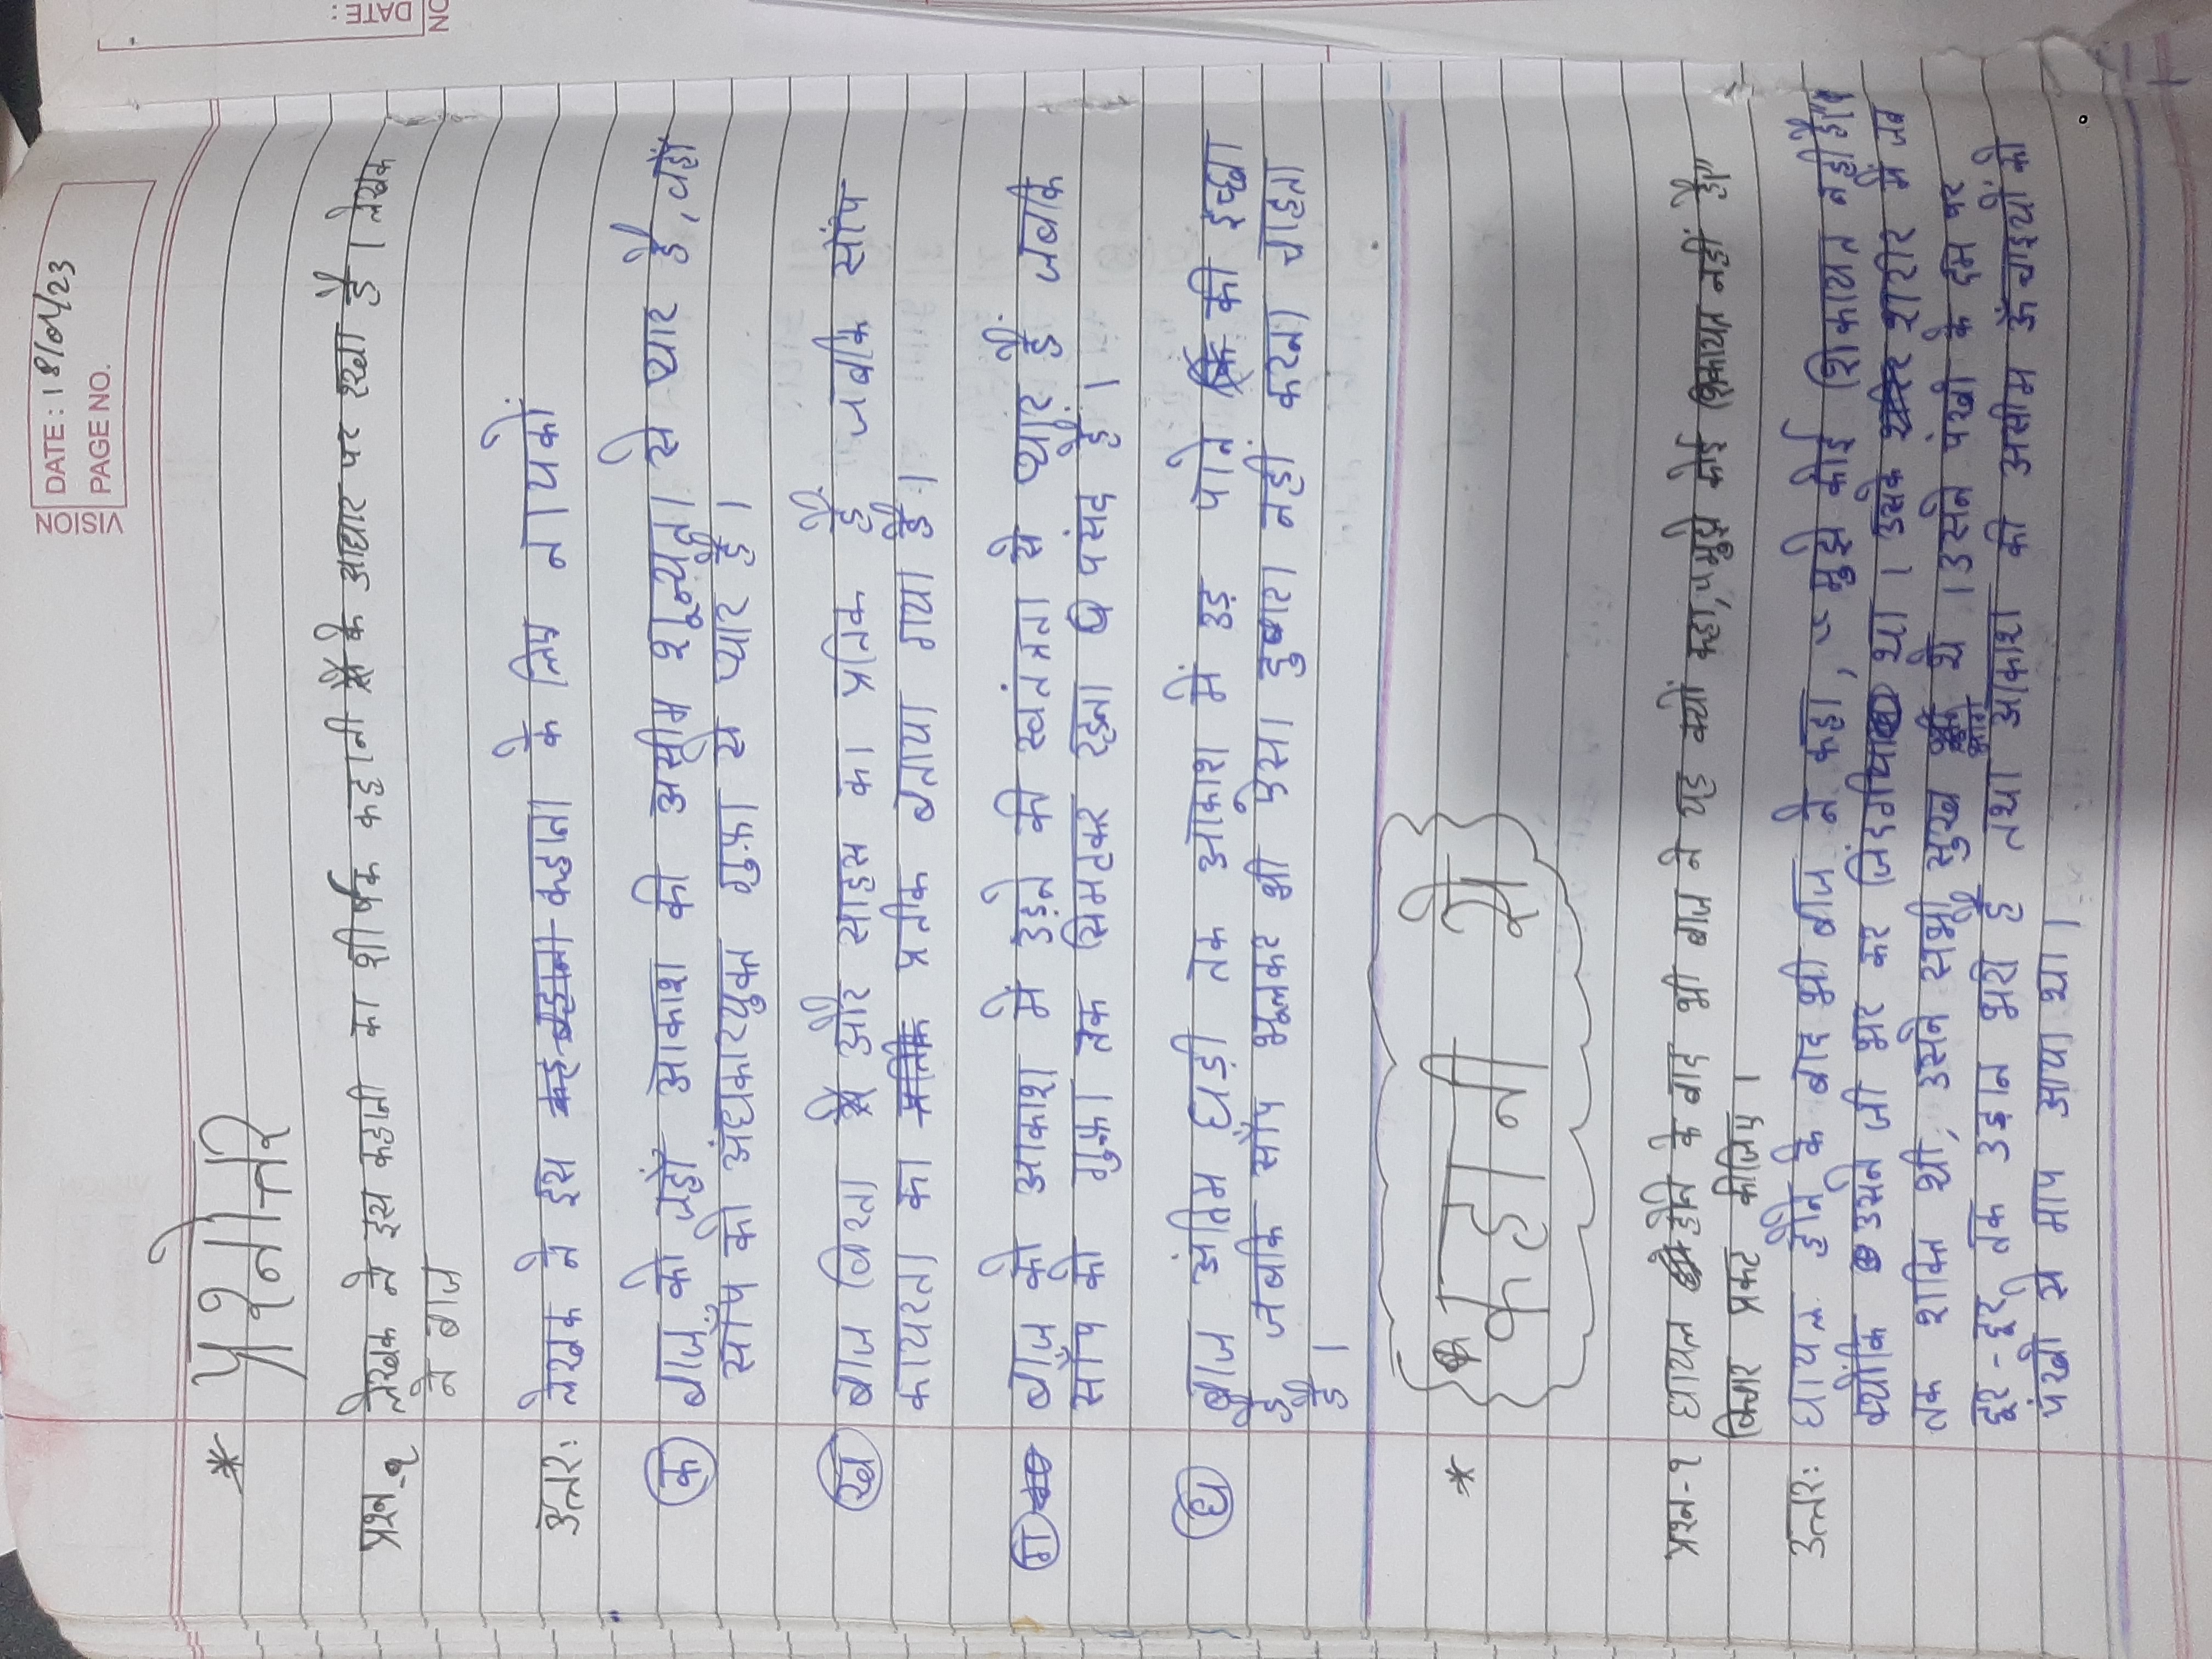 VISION
DATE : 18/04/23
PAGE NO.
* प्रश्नोत्तर
प्रश्न-१ लेखक ने इस कहानी का शीर्षक कहानी के आधार पर रखा है। लेखक
ने बाज
उत्तर: लेखक ने इस कहानी के लिए नायकों
क बाज को जहाँ आकाश की असीम शून्यता से प्यार है, वहाँ
साँप को अंधकारयुक्त गुफ़ा से प्यार है।
ख बाज विरता और साहस का प्रतिक हैं जबकि साँप
कायरता का प्रतीक बताया गया है।
ग बाज को आकाश में उड़ने की स्वतंत्रता से प्यार हैं जबकि
साँप को गुफ़ा तक सिमटकर रहना पसंद हैं।
घ बाज अंतिम घड़ी तक आकाश में उड़ पाने की इच्छा
है जबकि साँप भूलकर भी ऐसा दुबारा नहीं करना चाहता
है।
* कहानी से
प्रश्न-१ घायल होने के बाद भी बाज ने यह क्यों कहा, "मुझे कोई शिकायत नहीं है।"
विचार प्रकट कीजिए।
उत्तर: घायल होने के बाद भी बाज ने कहा, "मुझे कोई शिकायत नहीं है।"
क्योंकि उसने जी भर कर था। उसके शरीर में जब
तक शक्ति थी, उसने सभी सुख भोगे थे। उसने पंखो के दम पर
दूर-दूर तक उड़ान भरी है तथा आकाश की असीम ऊँचाइयों को
पंखो से माप आया था।
DATE:
NO